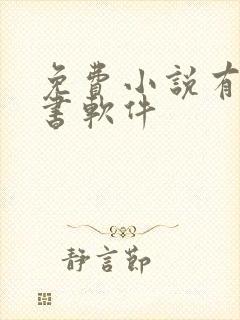 免費小說有
書軟件
靜言節